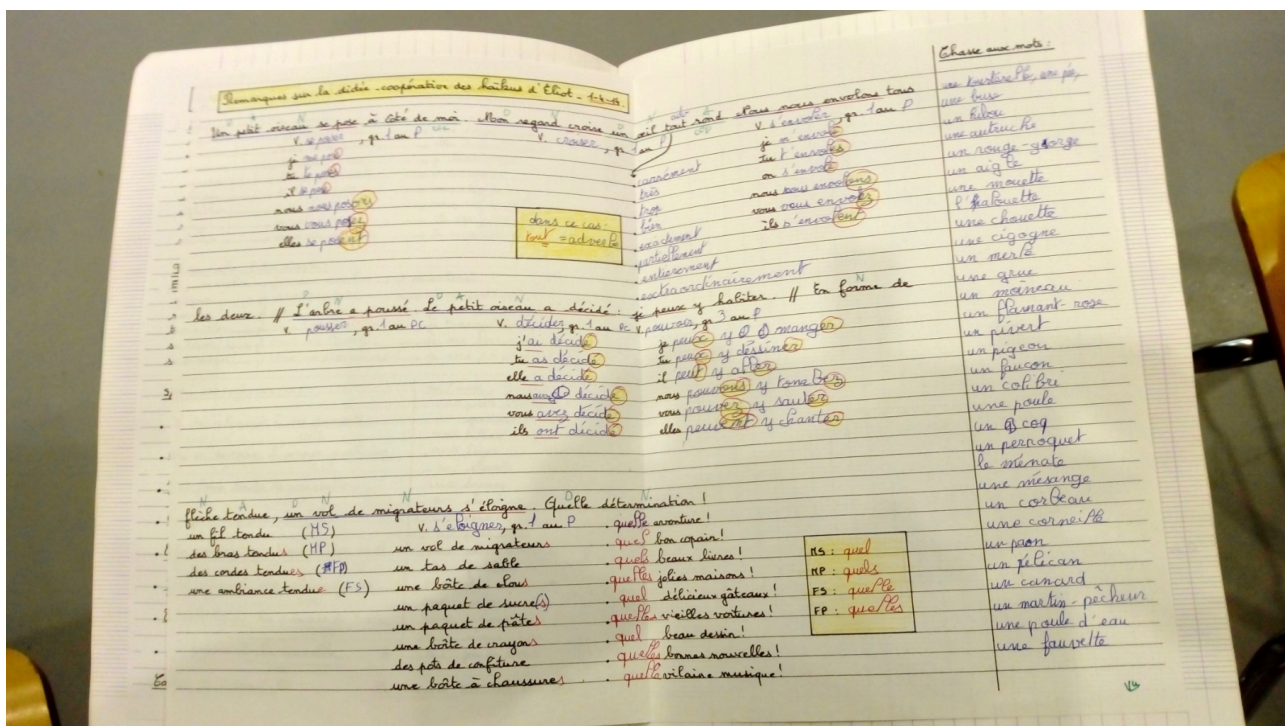 Remarques sur la dictée-coopération des haïkus d'Eliot -
Un petit oiseau se pose à côté de moi. Mon regard croise un œil tout rond. Nous nous envolons tous
v. se poser, gr. 1 au P
v. croiser, gr. 1 au P
v. s'envoler, gr. 1 au P
je me pose
tu te poses
il se pose
nous nous posons
vous vous posez
elles se posent
dans ce cas:
tout = adverbe
carrément
très
trop
bien
exactement
partiellement
entièrement
extraordinairement
je m'envole
tu t'envoles
on s'envole
nous nous envolons
vous vous envolez
ils s'envolent
les deux. // L'arbre a poussé. Le petit oiseau a décidé : je peux y habiter. // En forme de
v. pousser, gr. 1 au PC
v. décider, gr. 1 au PC
v. pouvoir, gr 3 au P
j'ai décidé
tu as décidé
elle a décidé
nous décidé
vous avez décidé
ils ont décidé
je peux y manger
tu peux y dessiner
il peut y aller
nous pouvons y tomber
vous pouvez y sauter
elles peuvent y chanter
flèche tendue, un vol de migrateurs s'éloigne. Quelle détermination !
v. s'éloigner, gr. 1 au P
un fil tendu (MS)
des bras tendus (MP)
des cordes tendues (FP)
une ambiance tendue (FS)
un vol de migrateurs
un tas de sable
une boîte de clous
un paquet de sucre(s)
un paquet de pâtes
une boîte de crayons
des pots de confiture
une boîte à chaussures
. quelle aventure !
. quel bon copain !
. quels beaux livres !
. quelles jolies maisons !
. quel délicieux gâteaux !
. quelles vieilles voitures !
. quel beau dessin !
. quelles bonnes nouvelles !
. quelle vilaine musique !
MS : quel
MP : quels
FS : quelle
FP : quelles
Chasse aux mots :
une pie,
une buse
un hibou
une autruche
un rouge-gorge
un aigle
une mouette
l'halouette
une chouette
une cigogne
un merle
une grue
un moineau
un flamant-rose
un pivert
un pigeon
un faucon
un colibri
une poule
un coq
un perroquet
le ménate
une mésange
un corbeau
une corneille
un paon
un pélican
un canard
un martin-pêcheur
une poule d'eau
une fauvette